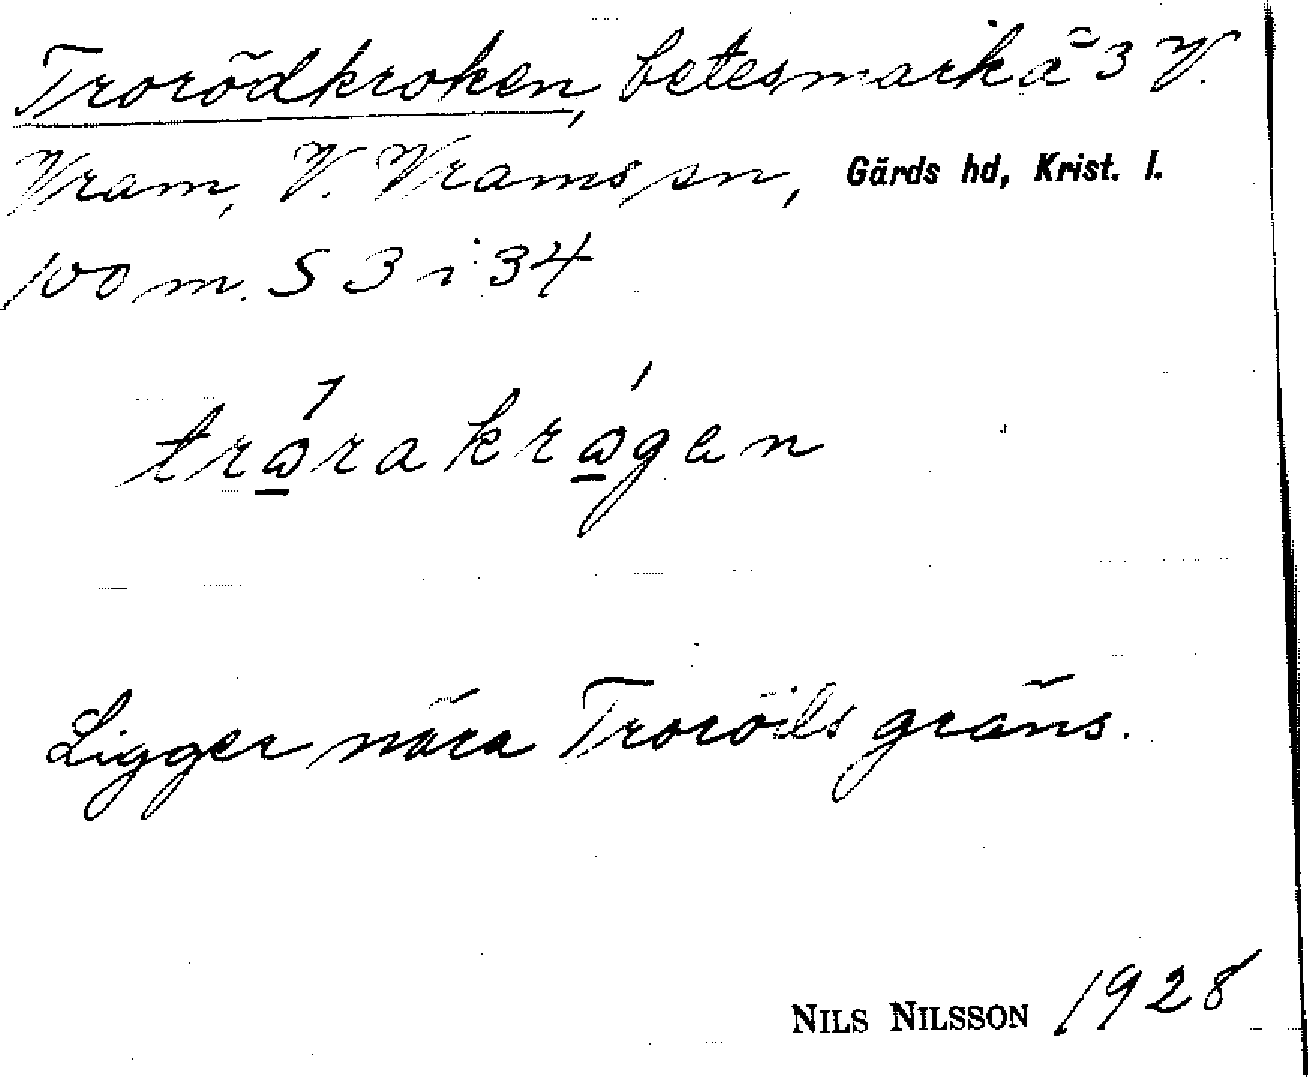 Trorödkroken, betesmark å 3 V.
Vram, V. Vrams sn, Gärds hd, Krist. l.
100 m. S 3 i 34
trørakrøgen
Ligger nära Troröds gräns.
NILS NILSSON 1928